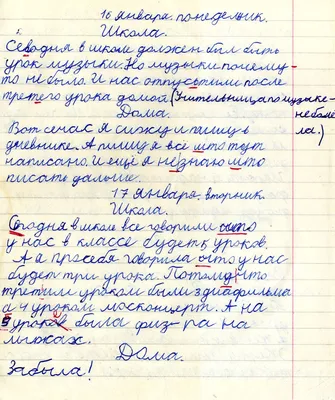 16 января понедельник.
Школа.
Севодня в школе должен был быть
урок музыки. Но музыки почему-
то не было. И нас отпустили после
третего урока домой (Учительница по музыке
не было.)
Дома.
Вот сечас я сижу и пишу в
дневнике. А пишу я всё што тут
написано. И ещё я незнаю што
писать дальше.
17 января, вторник.
Школа.
Сегодня в школе все говорили что
у нас в классе будет 5 уроков.
А а про себя говорила что у нас
будет три урока. Потому что
третим уроком были 3 диафильма
а 4 уроком москонцерт. А на
5 уроке была физ-ра на
лыжах.
Дома.
Забыла!